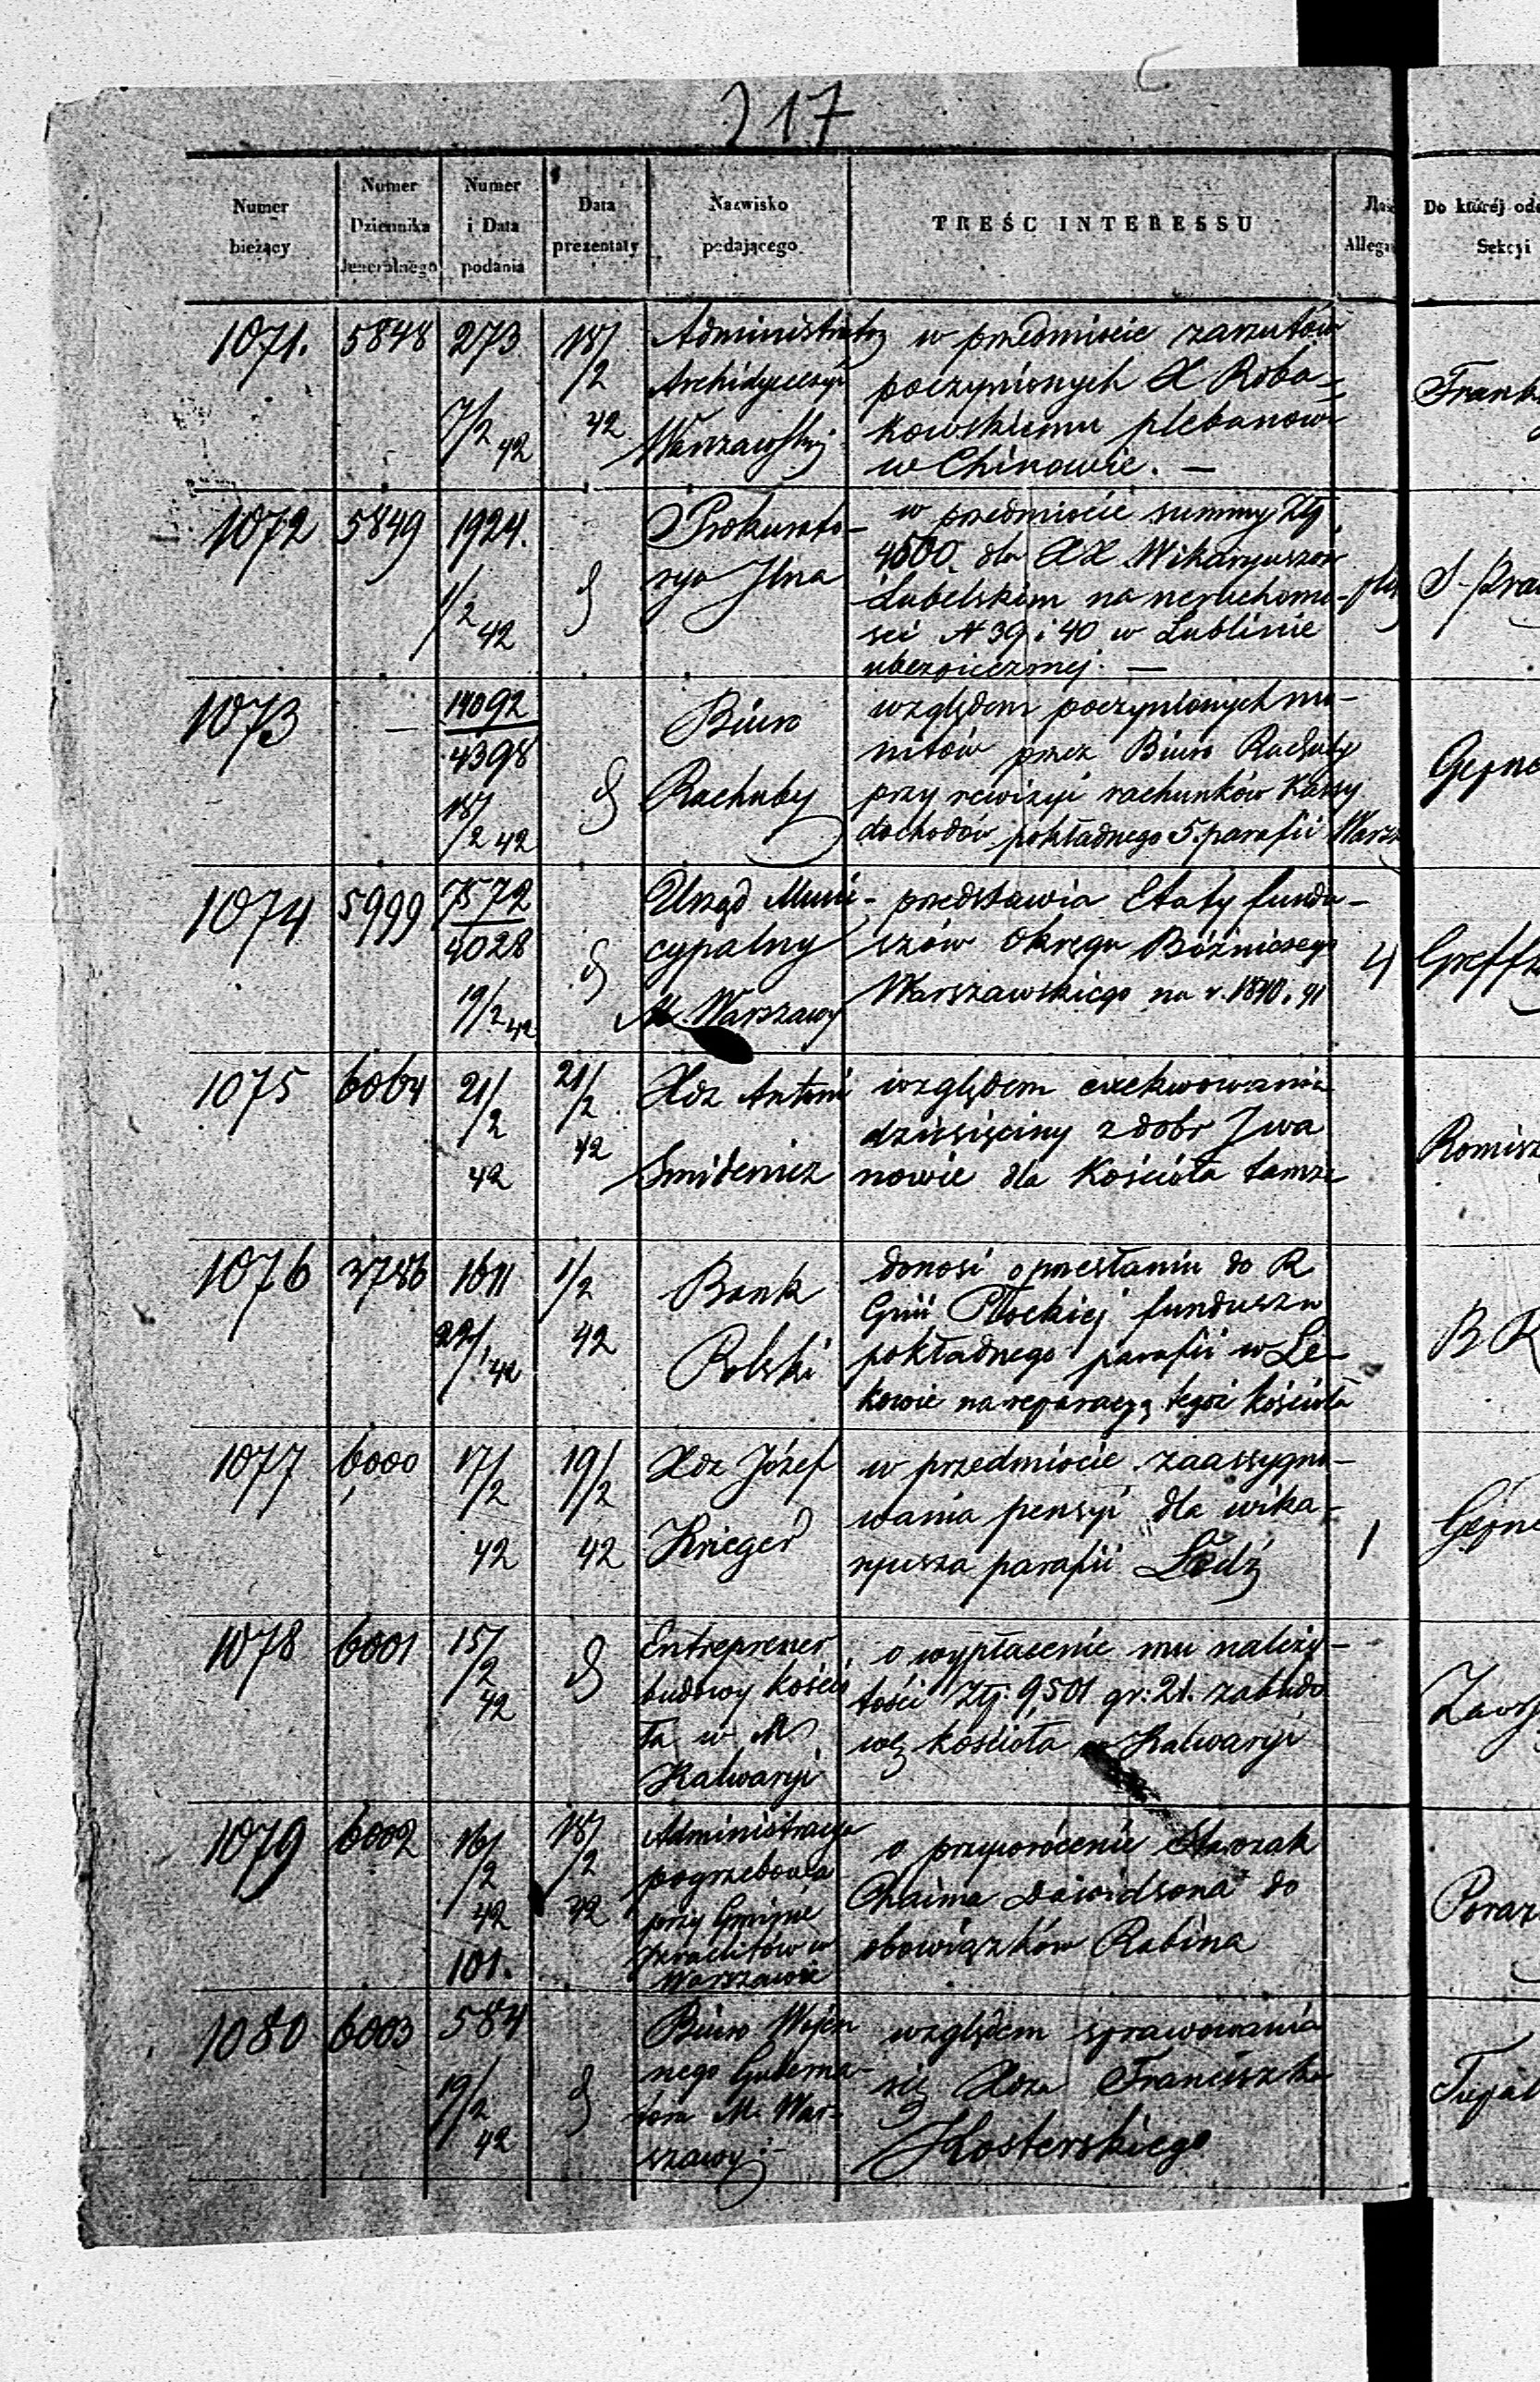 217
Numer bieżący
Numer Dziennika Jeneralnego
Numer i Data podania
Data prezentaty
Nazwisko podającego
TREŚĆ INTERESSU
Allega
Do któréj
Sekcyi
1071. 5848 273 7/2 42 18/2 42
Administrator
Archidyecezyi
Warszawskiej
w przedmiocie zarzutów
poczynionych X Roba-
kowskiemu plebanowi
w Chinowie. —
1072 5849 1924. 1/2 42 d
Prokurato-
rya Jlna
w przedmiocie summy Złp
4500. dla XX. Wikaryuszów
Lubelskim na nieruchomo-
sci N 39 i 40 w Lublinie
ubezpieczonej. —
1073 — 14092 4398 18/2 42 d
Biuro
Rachuby
względem poczynionych mo-
nitów przez Biuro Rachuby
przy rewizyi rachunków Kassy
dochodów pokładnego 5. parafii Warsz
1074 5999 7572 4028 19/2 42 d
Urząd Muni-
cypalny
M. Warszawy
przedstawia Etaty fundu-
szów Okręgu Bóżniczego
Warszawskiego na r. 1840. 41
4
1075 6064 21/2 42 21/2 42
Xdz Antoni
względem exekwowania
dziesięciny z dobr Iwa
nowic dla Kościoła tamże
1076 3786 1611 22/1 42 1/2 42
Bank
Polski
donosi o przesłaniu do R
Gnii Płockiej funduszu
pokładnego parafii w Le-
kowie na reparacyą tegoż kościoła
B
1077 6000 17/2 42 19/2 42
Xdz Józef
Krieger
w przedmiocie zaassygno-
wania pensyi dla wika-
ryusza parafii Łodź
1
1078 6001 15/2 42 d
Entreprener
budowy kościo
ła w M
Kalwaryi
o wypłacenie mu należy-
tości Złp. 9,501 gr: 21. za budo
wę kościoła w Kalwaryi
1079 6002 16/2 42 101. 18/2 42
Administracya
pogrzebowa
przy Gminie
Izraelitów w
Warszawie
o przywrócenie Starozak
Chaima Dawidsona do
obowiązków Rabina
1080 6003 584 19/2 42 d
Biuro Wojen
nego Guberna-
tora M. War-
szawy.
względem sprawowania
się Xdza Franciszka
Kosterskiego